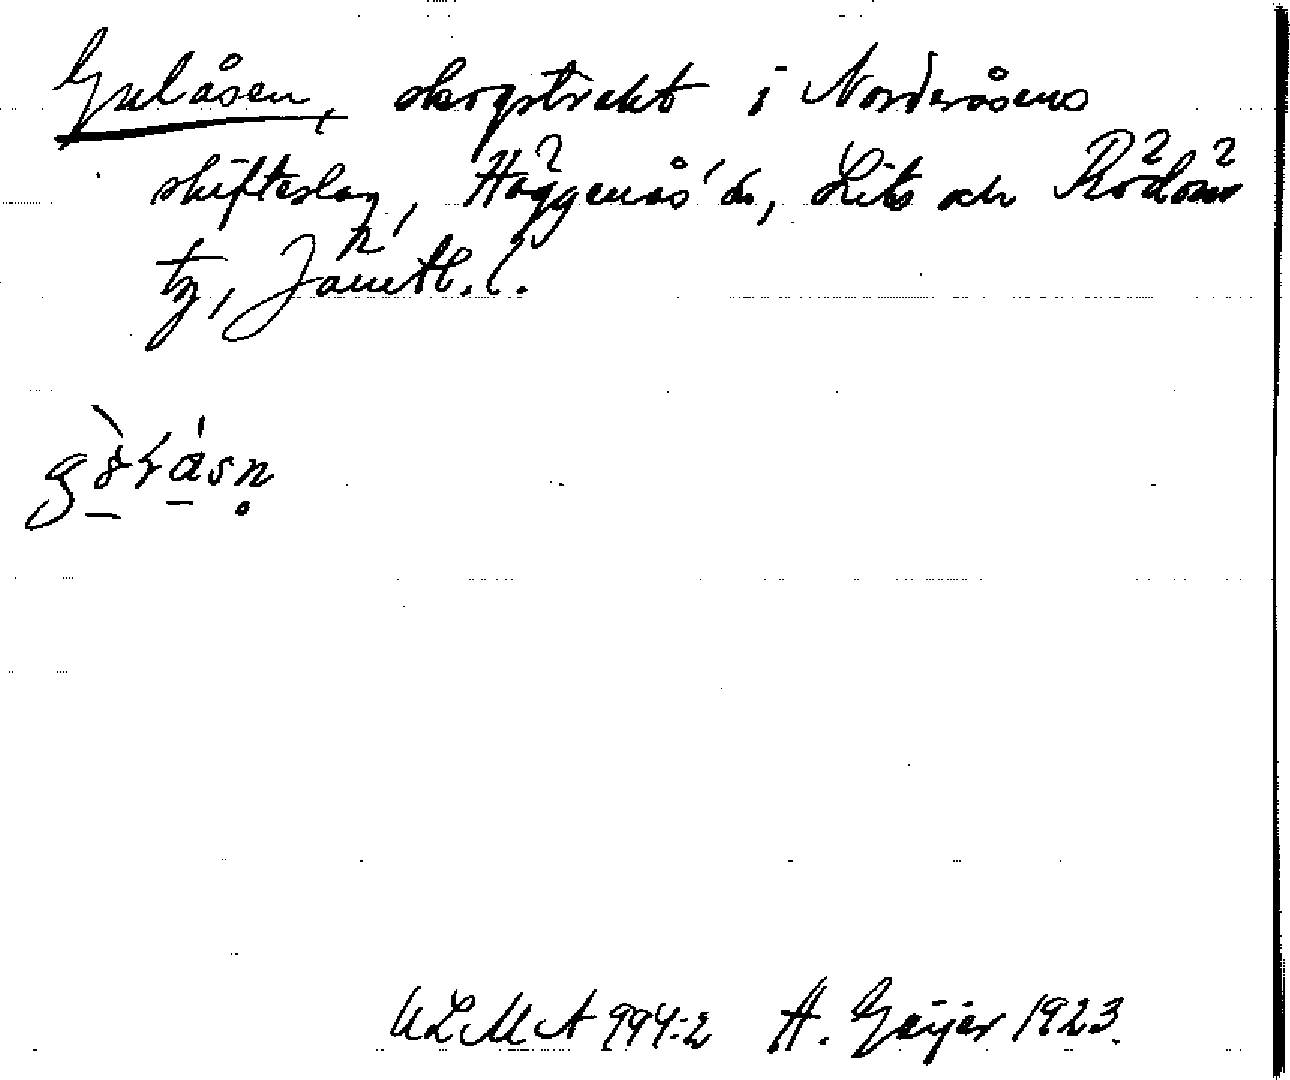 Gulåsen, skogstrakt i Norderåsens
skifteslag, Häggenås' sn, Lits och Rödöns
tg, Jämtl. l.
ULMA 994:2 A. Geijer 1923.